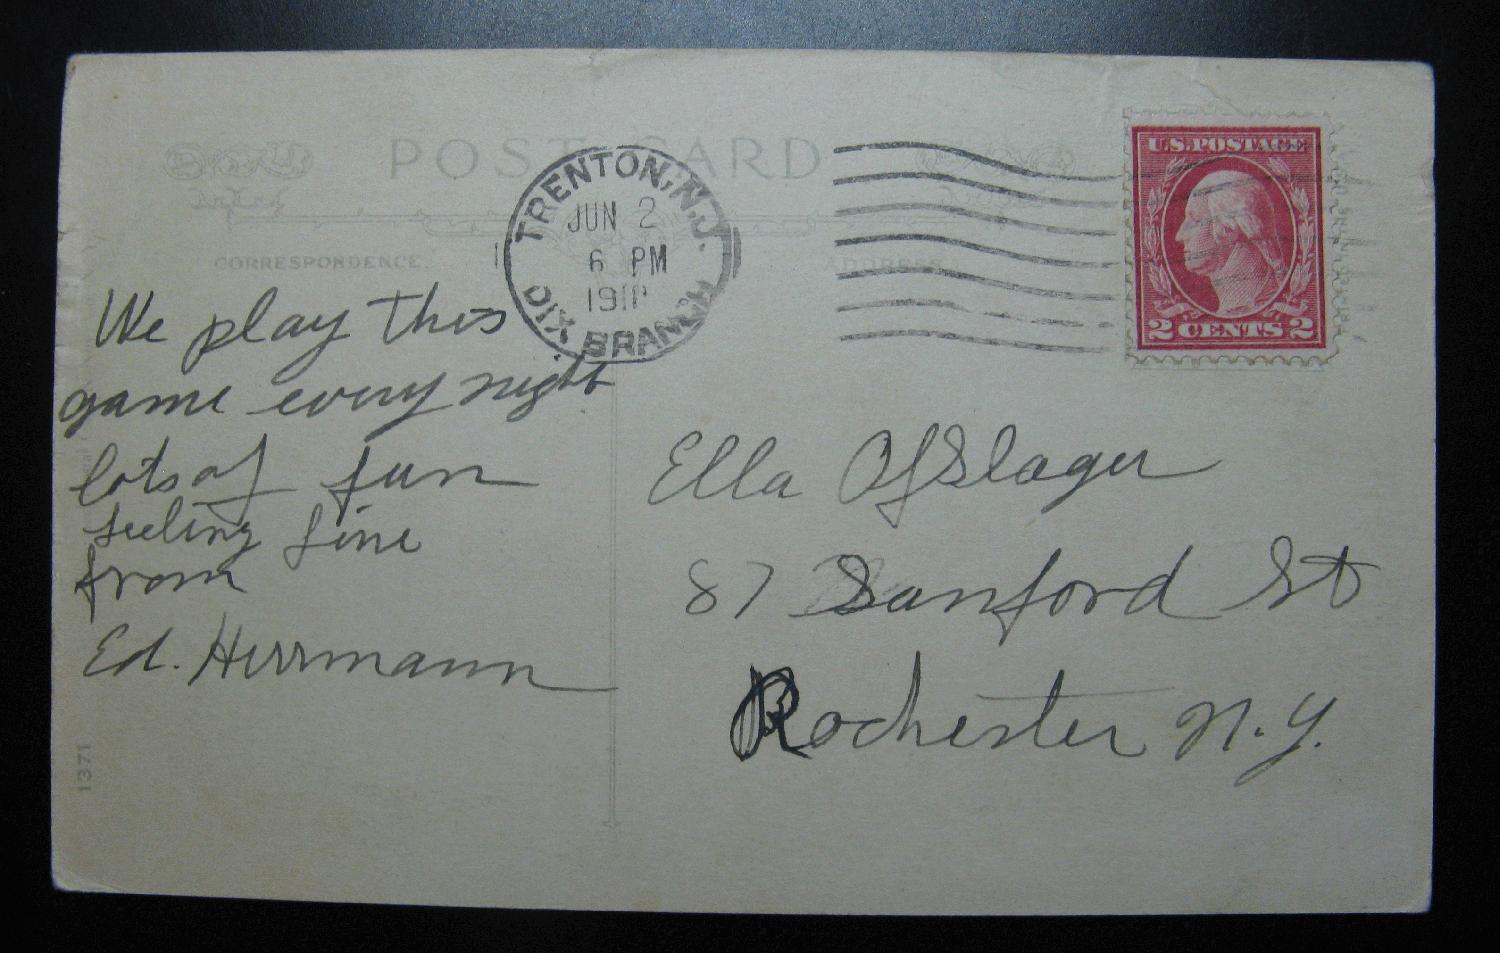 POST CARD
CORRESPONDENCE
ADDRESS
TRENTON, N.J.
JUN 2
6 PM
DIX BRANCH
U.S. POSTAGE
2 CENTS 2
We play this
game every night
lots of fun
feeling fine
from
Ed. Herrmann
Ella Ofslager
87 Sanford St
Rochester N.Y.
1371